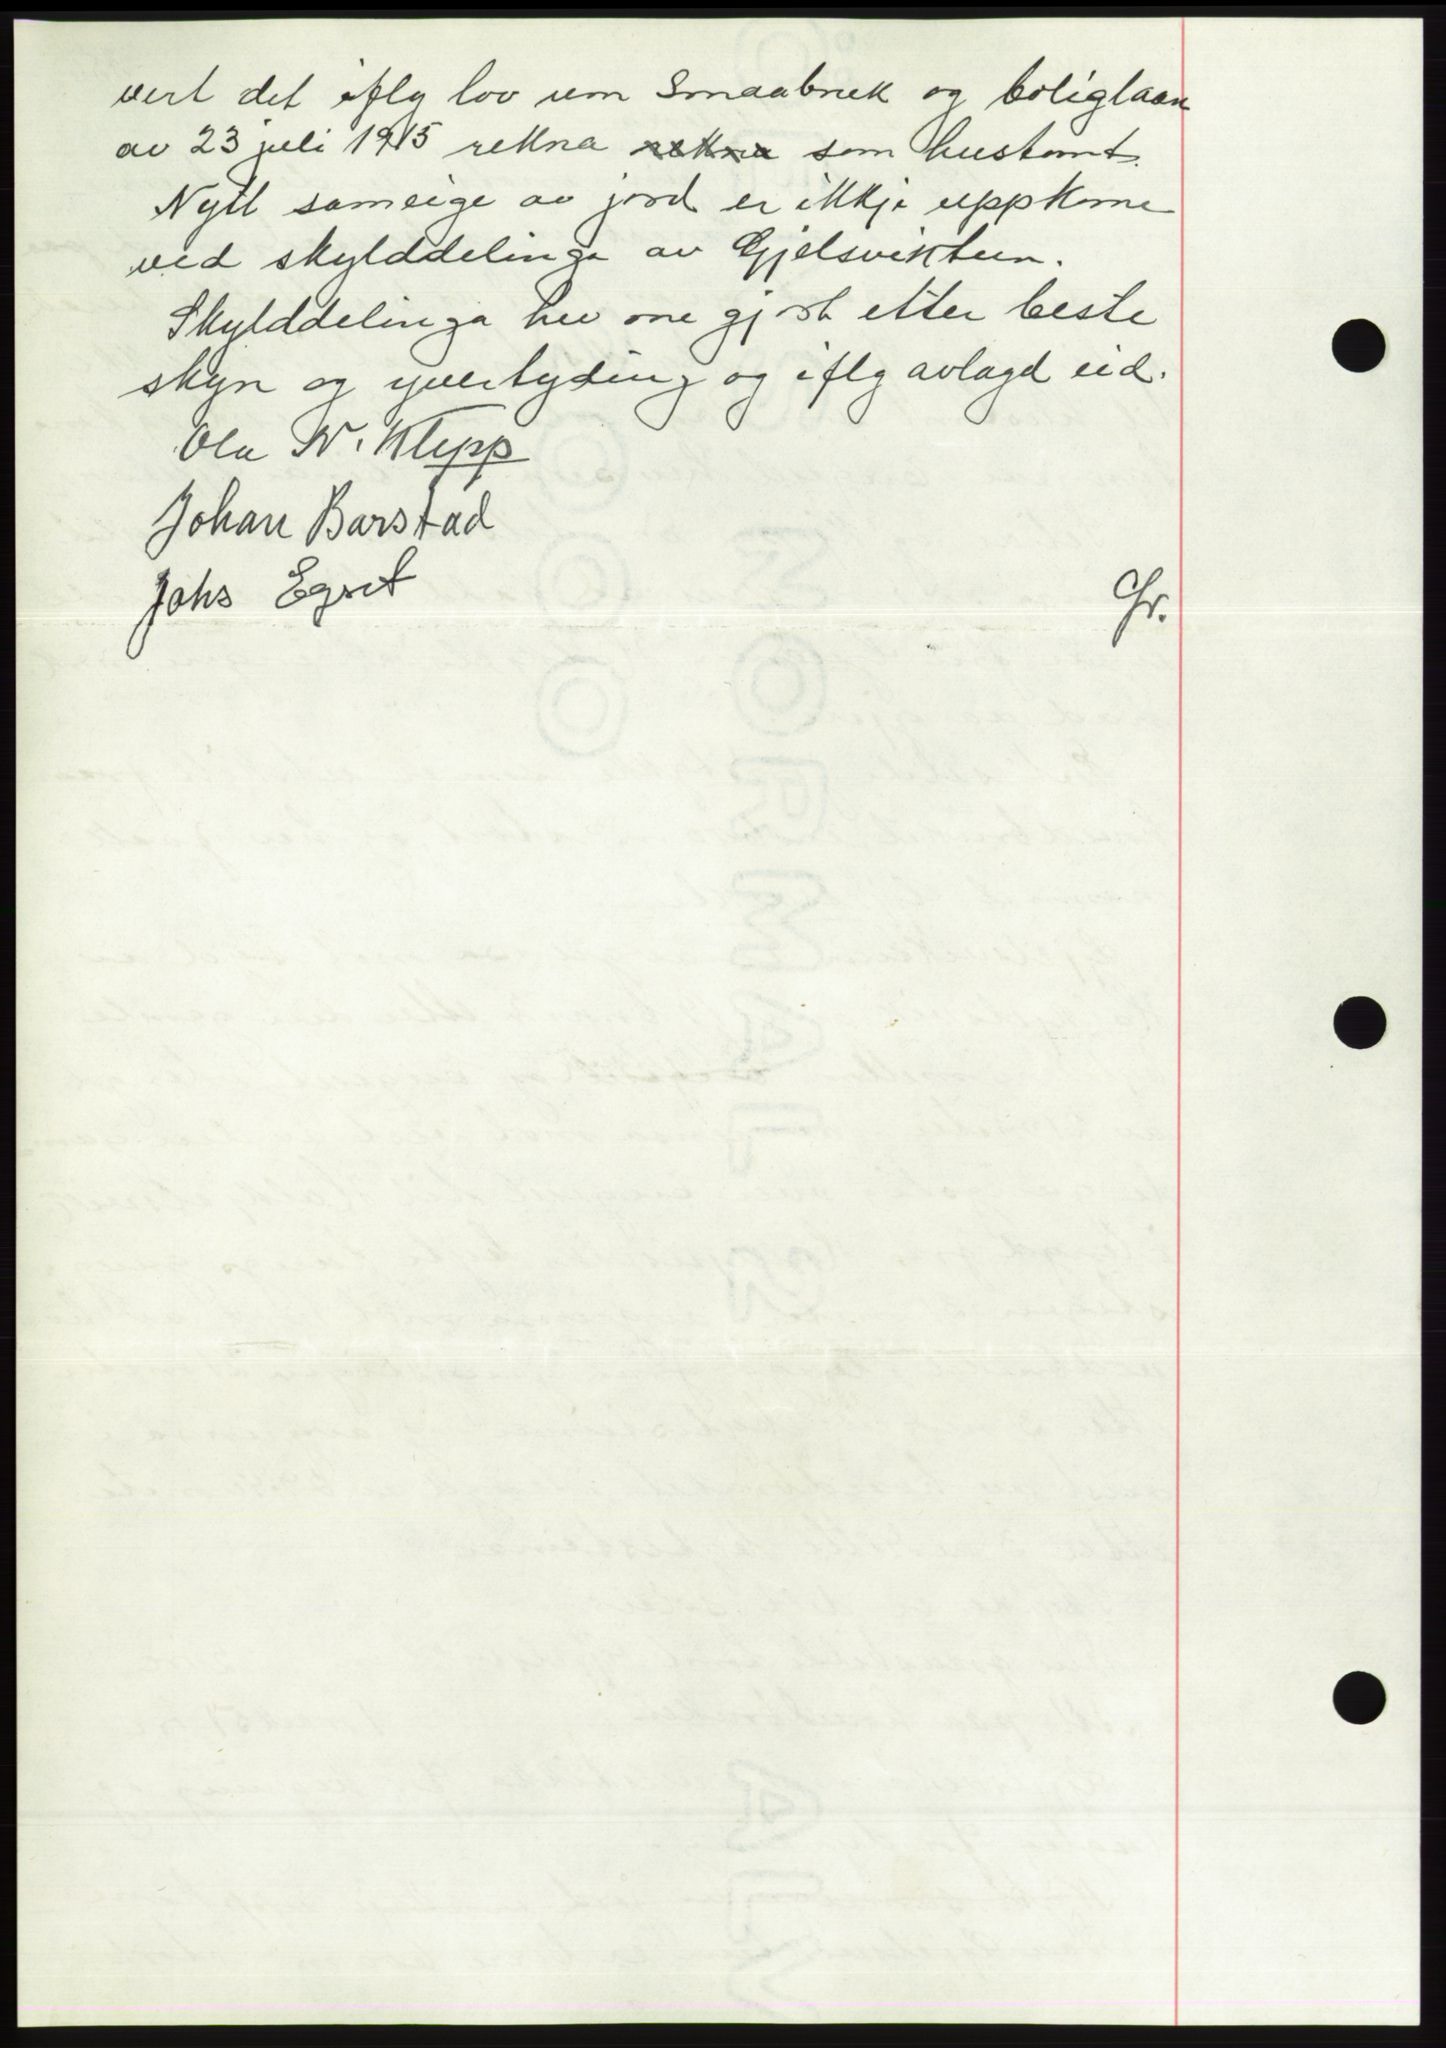 vert det iflg lov um Smaabruk og boliglaan
av 23 juli 1915 rekna rekna som hustomt.
Nytt sameige av jord er ikkje uppkome
ved skylddelinga av Gjelsviktun.
Skylddelinga hev me gjort etter beste
skyn og yvertyding og iflg avlagd eid.
Ola N. Klepp
Johan Barstad
Johs Egset